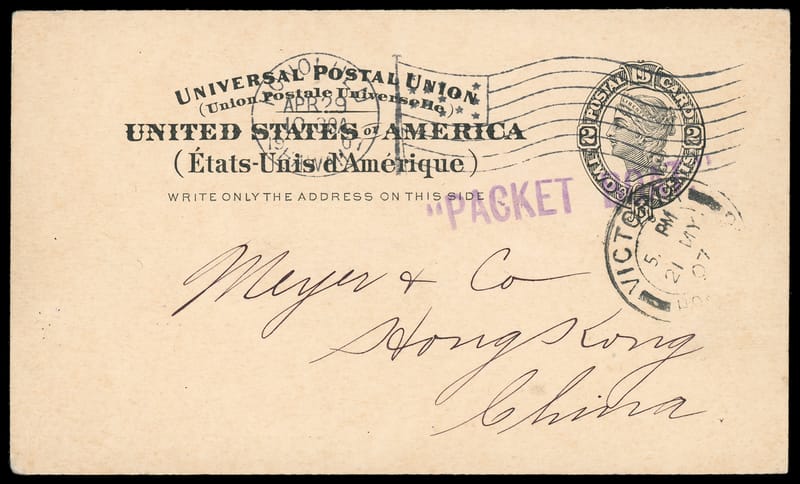 UNIVERSAL POSTAL UNION
(Union Postale Universelle)
UNITED STATES OF AMERICA
(États-Unis d'Amérique)
WRITE ONLY THE ADDRESS ON THIS SIDE
APR 29
10 30A
1907
POSTAL CARD
2 CENTS 2
"PACKET
VICTO
5 PM
21 MY
07
Meyer & Co
HongKong
China.